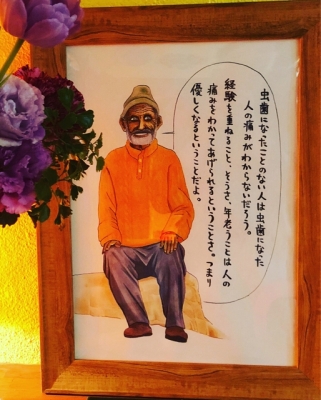 虫歯になったことのない人は虫歯になった
人の痛みがわからないだろう。
経験を重ねること、そうさ、年老うことは人の
痛みをわかってあげられるということさ。つまり
優しくなるということだよ。